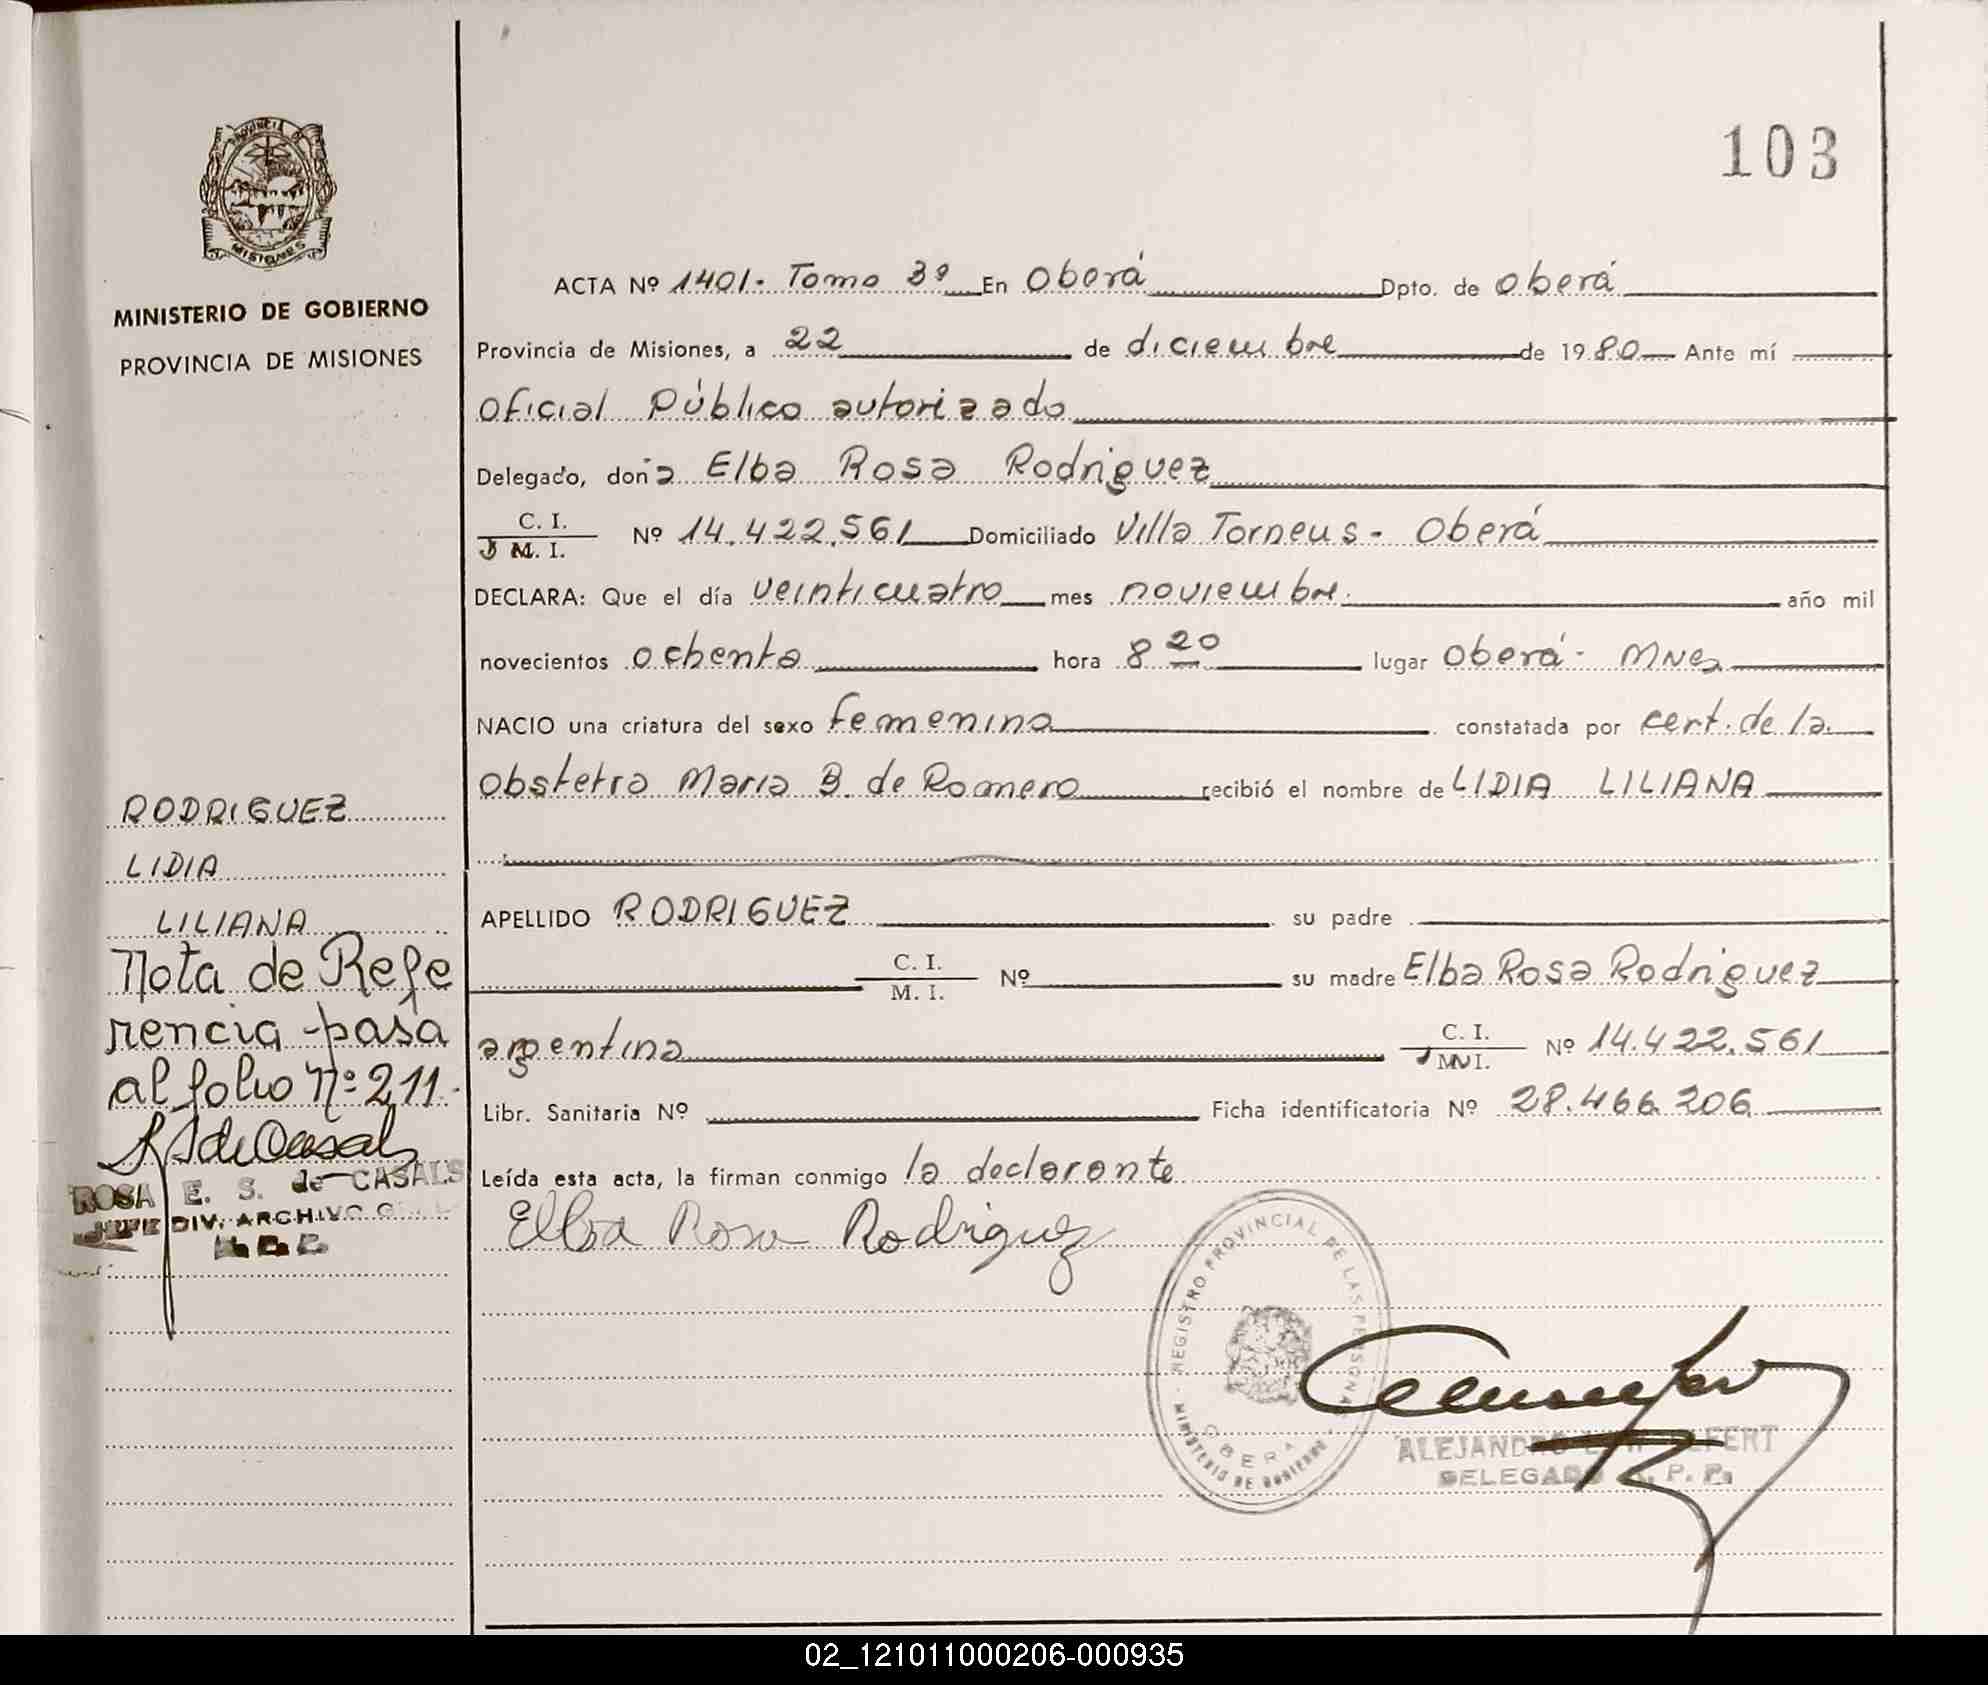 103
MISIONES
MINISTERIO DE GOBIERNO
PROVINCIA DE MISIONES
ACTA Nº 1401. Tomo 3º En Oberá Dpto. de Oberá
Provincia de Misiones, a 22 de diciembre de 1980 Ante mí
Oficial Público autorizado
Delegado, doña Elba Rosa Rodriguez
C. I.
M. I. Nº 14.422.561 Domiciliado Villa Torneus - Oberá
DECLARA: Que el día veinticuatro mes noviembre. año mil
novecientos ochenta hora 8 20 lugar Oberá - Mnes
NACIO una criatura del sexo femenino constatada por cert. de la
obstetra Maria B. de Romero recibió el nombre de LIDIA LILIANA
APELLIDO RODRIGUEZ su padre
C. I.
M. I. Nº su madre Elba Rosa Rodriguez
argentina C. I. Nº 14.422.561
Libr. Sanitaria Nº Ficha identificatoria Nº 28.466.206
Leída esta acta, la firman conmigo la declarante
Elba Rosa Rodriguez
RODRIGUEZ
LIDIA
LILIANA
Nota de Refe
rencia pasa
al folio Nº 211.
ROSA E. S. de CASALS
JEFE DIV. ARCHIVO
REGISTRO PROVINCIAL DE LAS PERSONAS
MINISTERIO DE GOBIERNO
OBERA
DELEGADO R. P. P.
02_121011000206-000935